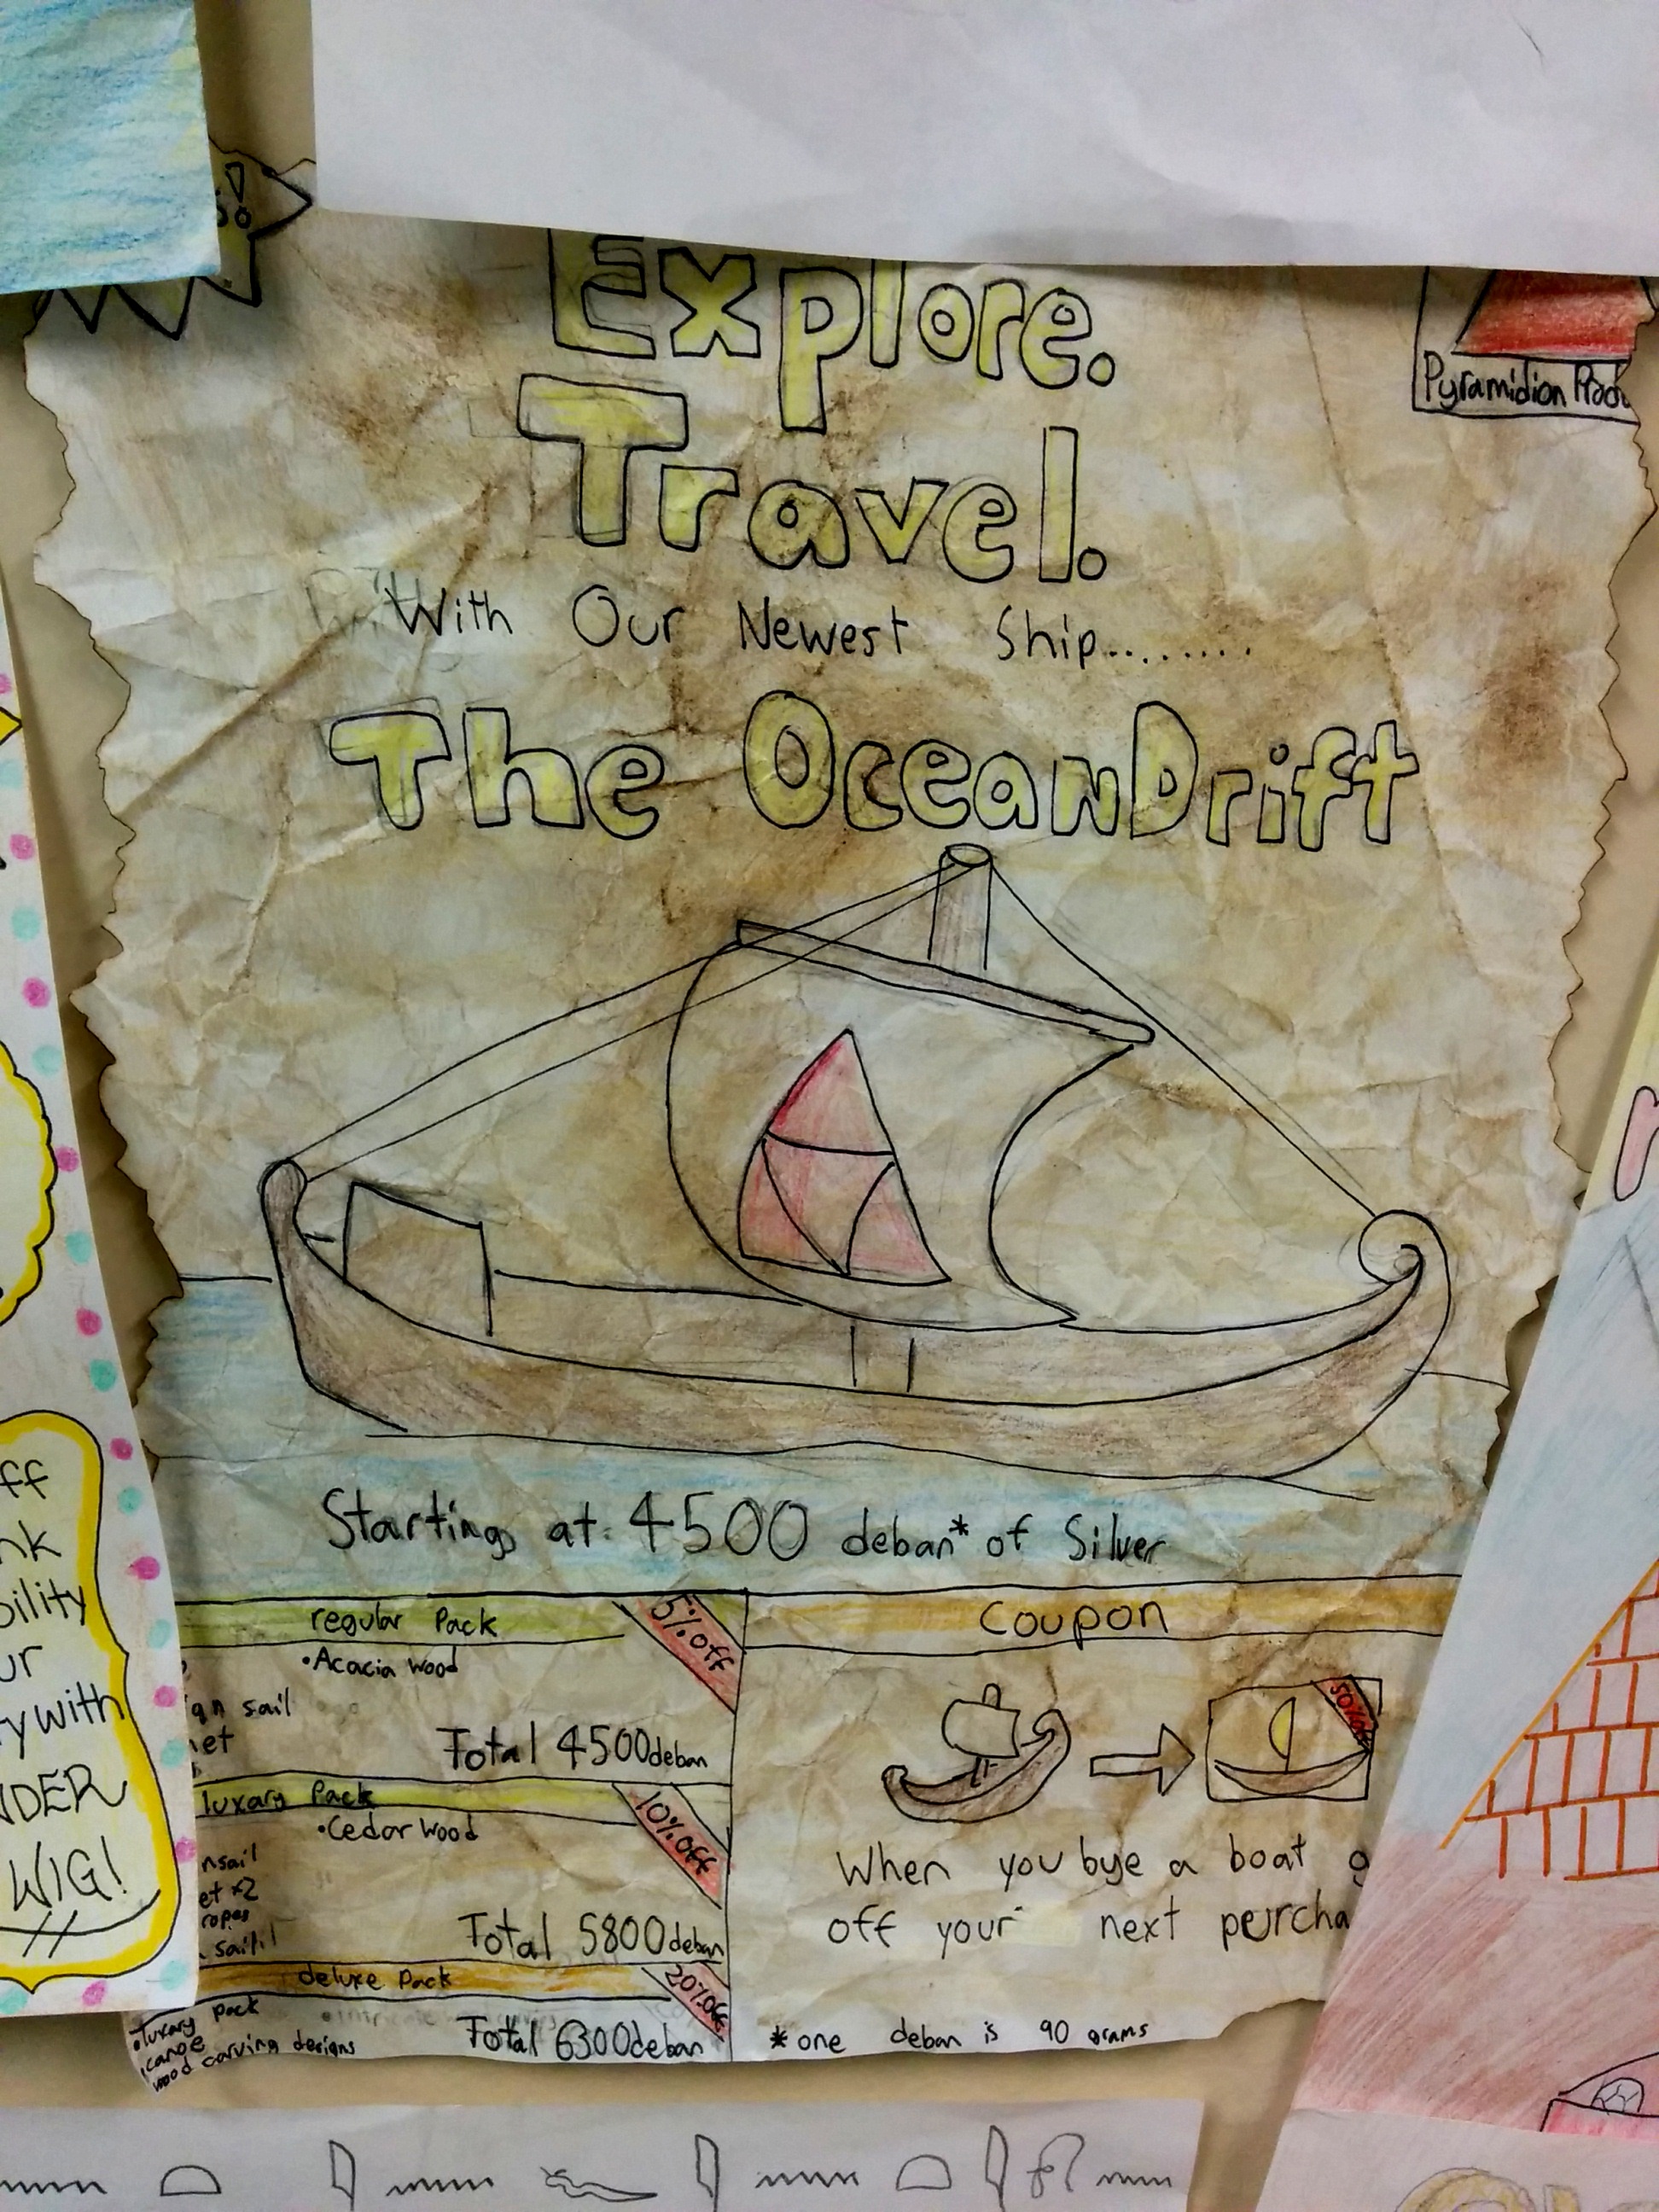 Explore.
Pyramidion
Travel.
With Our Newest Ship........
The OceanDrift
Starting at: 4500 deban* of Silver
regular Pack
5% off
• Acacia Wood
sail
Total 4500 deban
luxary Pack
10% off
• Cedar Wood
x2
ropes
Total 5800 deban
deluxe Pack
20% off
• luxary pack
• canoe
wood carving designs
Total 6300 deban
Coupon
50%
When you bye a boat
off your next
* one deban is 90 grams
ff
with
WIG!